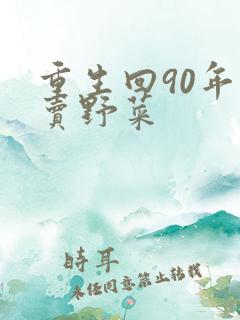 重生回90年
賣野菜
時耳
未经同意禁止转载